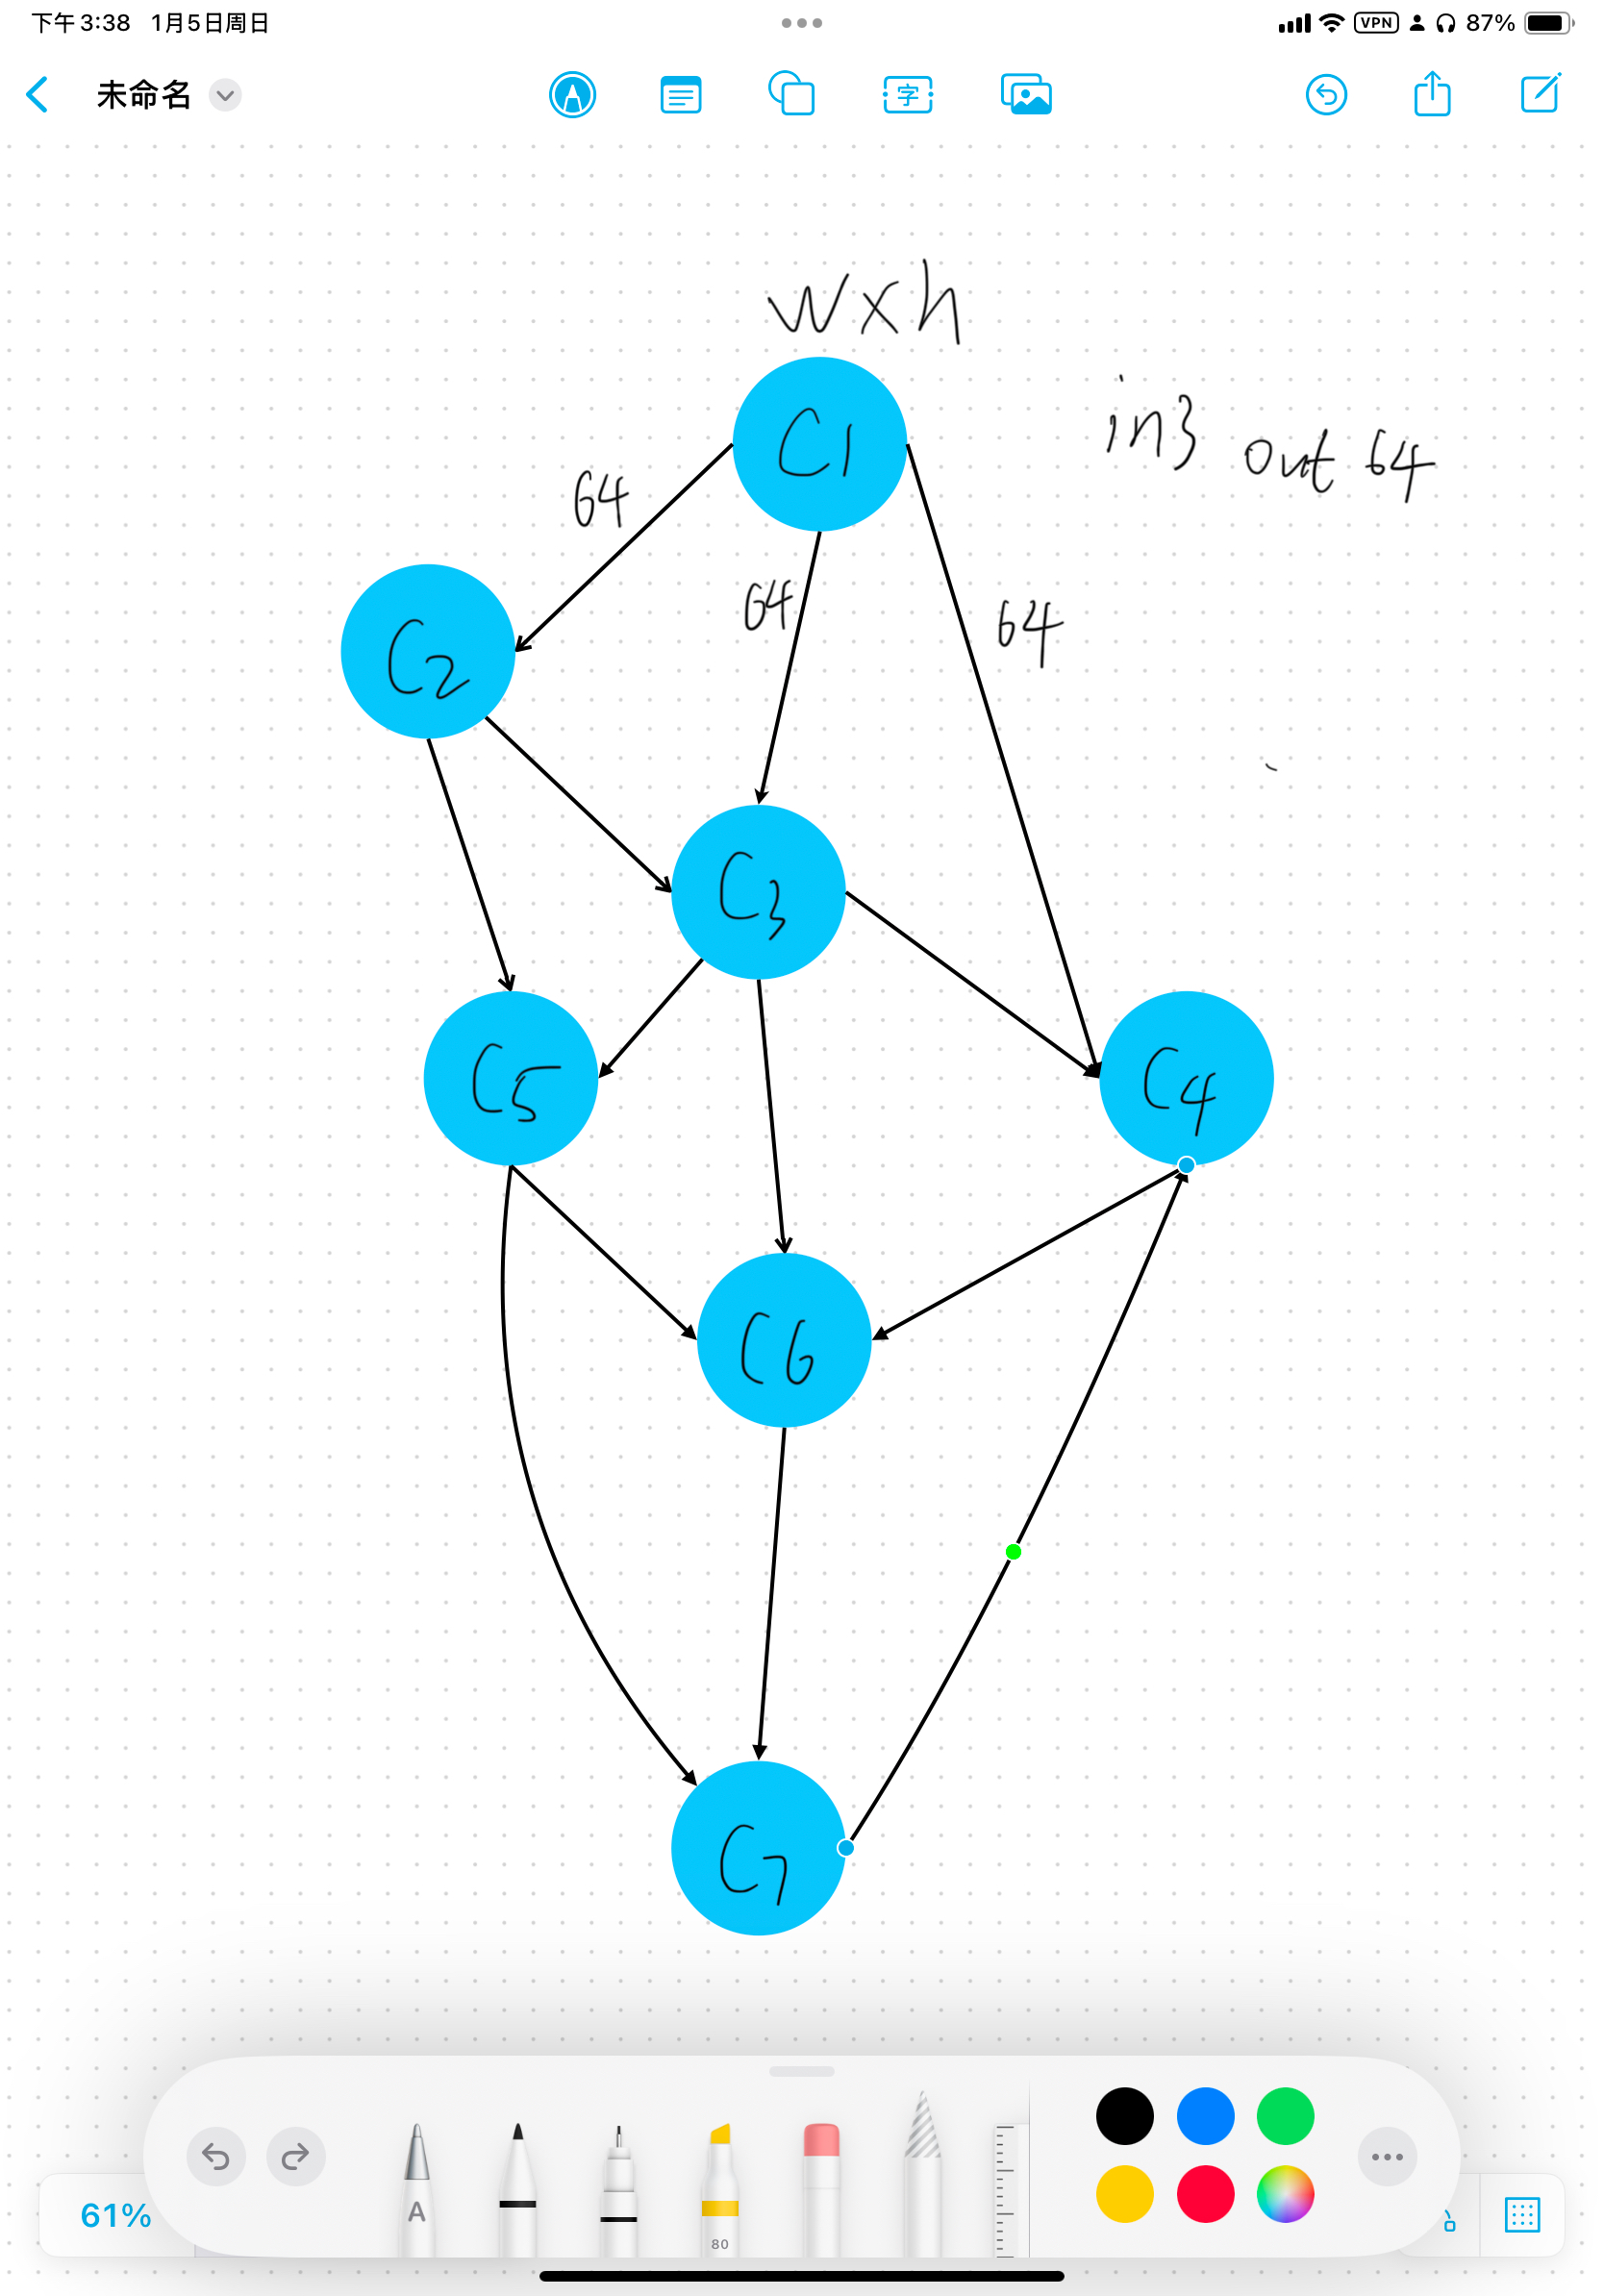 下午3:38 1月5日周日
VPN 87%
未命名
字
wxh
C1
in3 out 64
64
64
64
C2
C3
C5
C4
C6
C7
A
80
61%